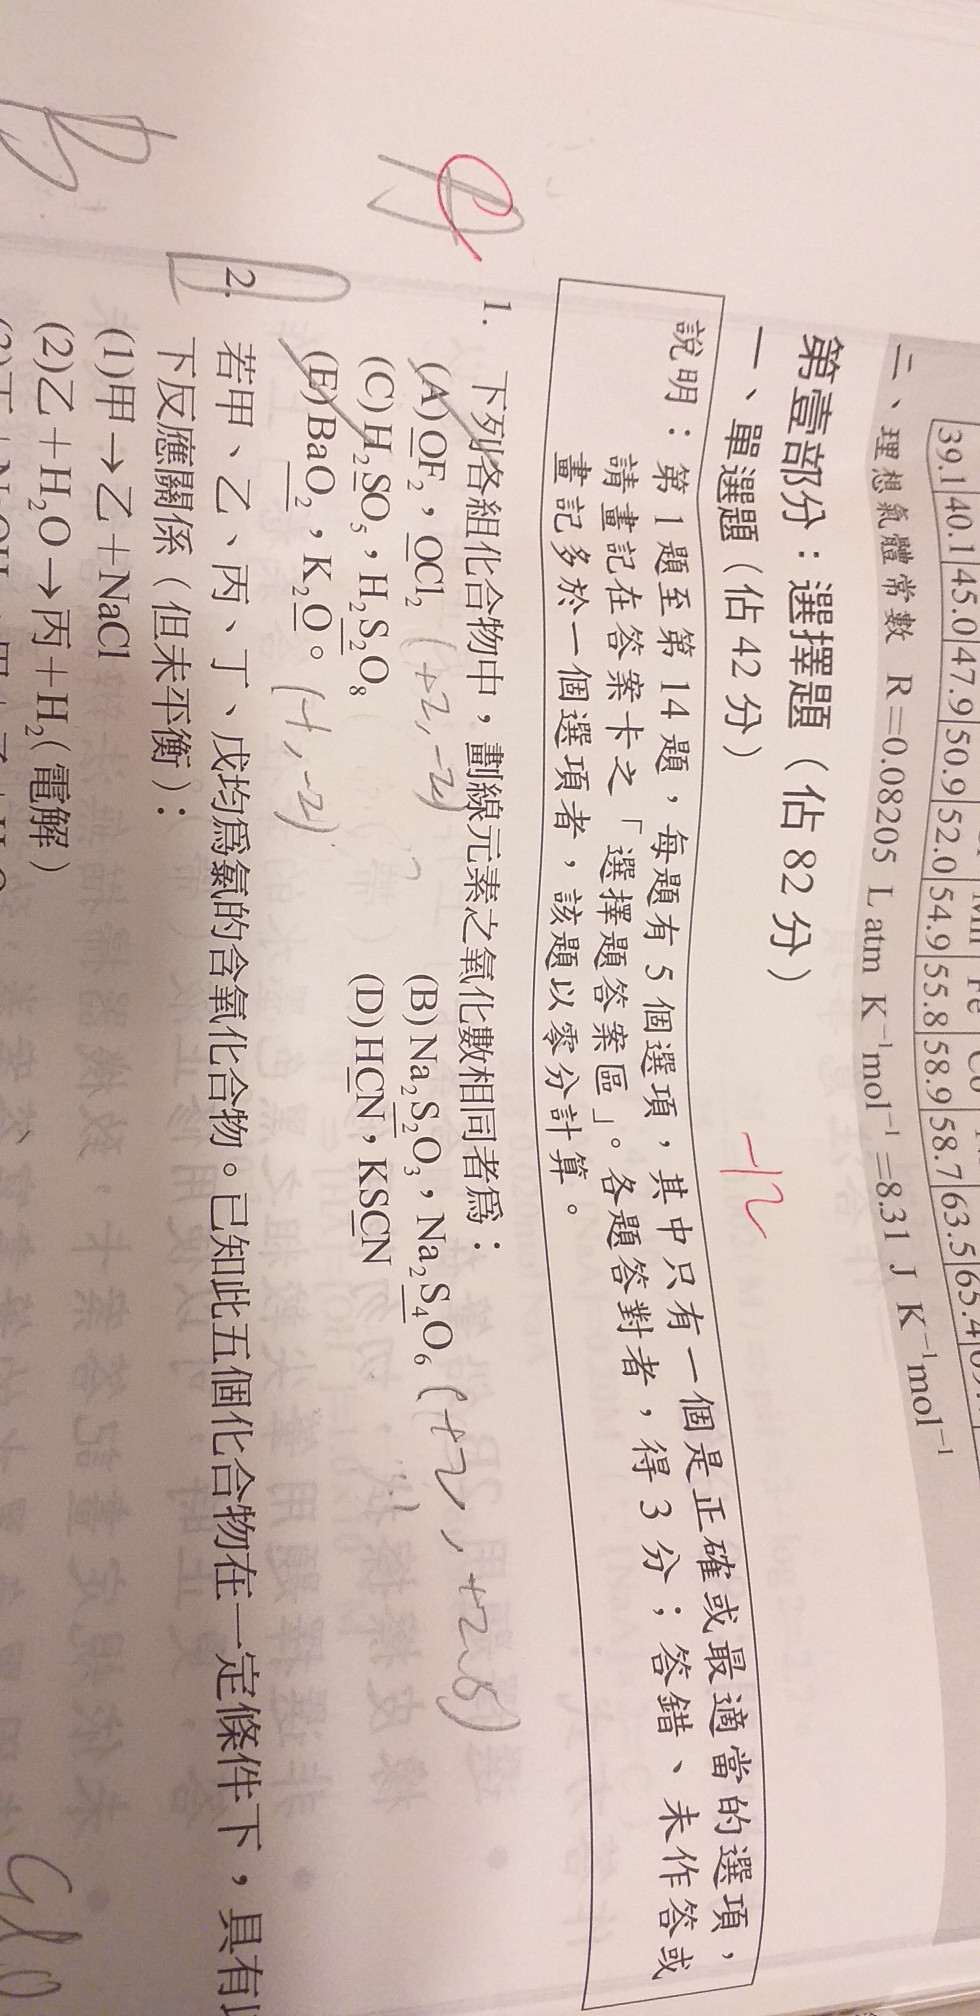 39.1 40.1 45.0 47.9 50.9 52.0 54.9 55.8 58.9 58.7 63.5 65.4
二、理想氣體常數 R=0.08205 L atm K⁻¹mol⁻¹=8.31 J K⁻¹mol⁻¹
第壹部分：選擇題（佔 82 分）
一、單選題（佔 42 分）
-12
說明：第 1 題至第 14 題，每題有 5 個選項，其中只有一個是正確或最適當的選項，
請畫記在答案卡之「選擇題答案區」。各題答對者，得 3 分；答錯、未作答或
畫記多於一個選項者，該題以零分計算。
1. 下列各組化合物中，劃線元素之氧化數相同者為：
(A)OF₂，OCl₂ (+2,-2)
(B)Na₂S₂O₃，Na₂S₄O₆ (+2, +2.5)
(C)H₂SO₅，H₂S₂O₈
(D)HCN，KSCN
(E)BaO₂，K₂O。 (-1,-2)
B
2. 若甲、乙、丙、丁、戊均為氯的含氧化合物。已知此五個化合物在一定條件下，具有以
下反應關係（但未平衡）：
(1)甲→乙＋NaCl
(2)乙＋H₂O→丙＋H₂(電解)